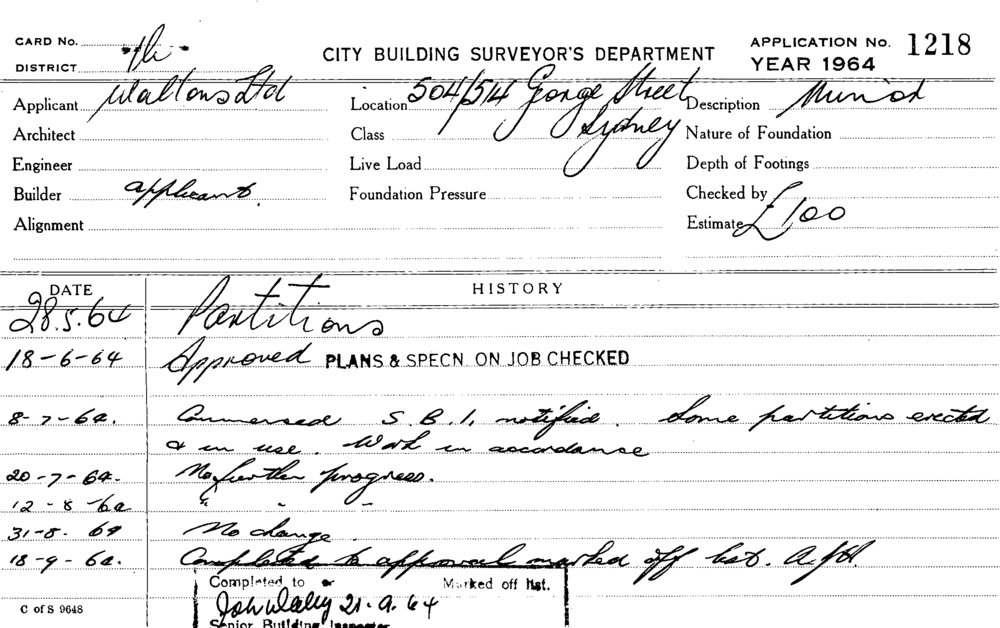 CARD No.
CITY BUILDING SURVEYOR'S DEPARTMENT
APPLICATION No. 1218
DISTRICT
YEAR 1964
Applicant Waltons Ltd
Location 504/514 George Street
Sydney
Description Minor
Architect
Class
Nature of Foundation
Engineer
Live Load
Depth of Footings
Builder applicant.
Foundation Pressure
Checked by
Alignment
Estimate £100
DATE
HISTORY
28.5.64 Partitions
18-6-64 Approved PLANS & SPECN. ON JOB CHECKED
8-7-64. Commenced S.B.I. notified. Some partitions erected
& in use. Work in accordance
20-7-64. No further progress.
12-8-64 " " "
31-8-64 No change.
18-9-64. Completed to approval marked off list.
Completed to Marked off list.
21.9.64
Senior Building Inspector
C of S 9648